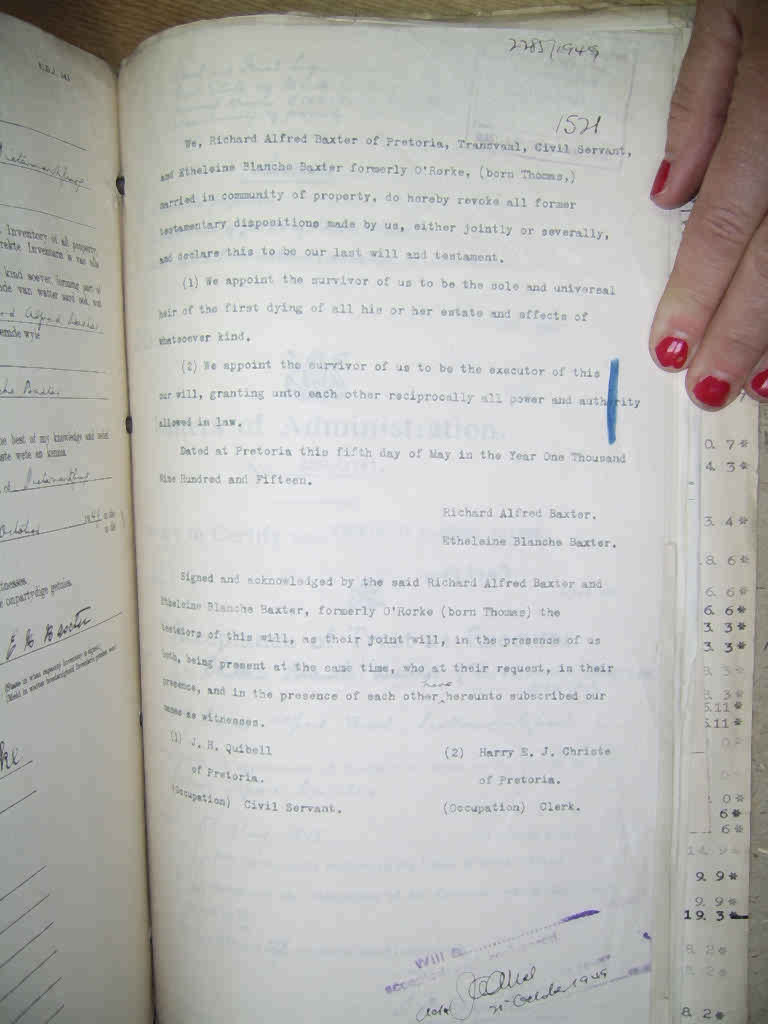 2285/1949
1521
We, Richard Alfred Baxter of Pretoria, Transvaal, Civil Servant,
and Etheleine Blanche Baxter formerly O'Rorke, (born Thomas,)
married in community of property, do hereby revoke all former
testamentary dispositions made by us, either jointly or severally,
and declare this to be our last will and testament.
(1) We appoint the survivor of us to be the sole and universal
heir of the first dying of all his or her estate and effects of
whatsoever kind.
(2) We appoint the survivor of us to be the executor of this
our will, granting unto each other reciprocally all power and authority
allowed in law.
Dated at Pretoria this fifth day of May in the Year One Thousand
Nine Hundred and Fifteen.
Richard Alfred Baxter.
Etheleine Blanche Baxter.
Signed and acknowledged by the said Richard Alfred Baxter and
Etheleine Blanche Baxter, formerly O'Rorke (born Thomas) the
testators of this will, as their joint will, in the presence of us
both, being present at the same time, who at their request, in their
presence, and in the presence of each other have hereunto subscribed our
names as witnesses.
(1) J. H. Quibell
of Pretoria.
(Occupation) Civil Servant.
(2) Harry E. J. Christe
of Pretoria.
(Occupation) Clerk.
Will
accepted
21 October 1949
Inventory of all property
kind soever, forming part of
best of my knowledge and belief
onpartydige getuies.
E B Baxter
0. 7*
4. 3*
3. 4*
8. 6*
6. 6*
6. 6*
3. 3*
3. 3*
3. 3*
3. 3*
5.11*
5.11*
0*
6*
6*
9. 9*
9. 9*
19. 3*
8. 2*
8. 2*
8. 2*